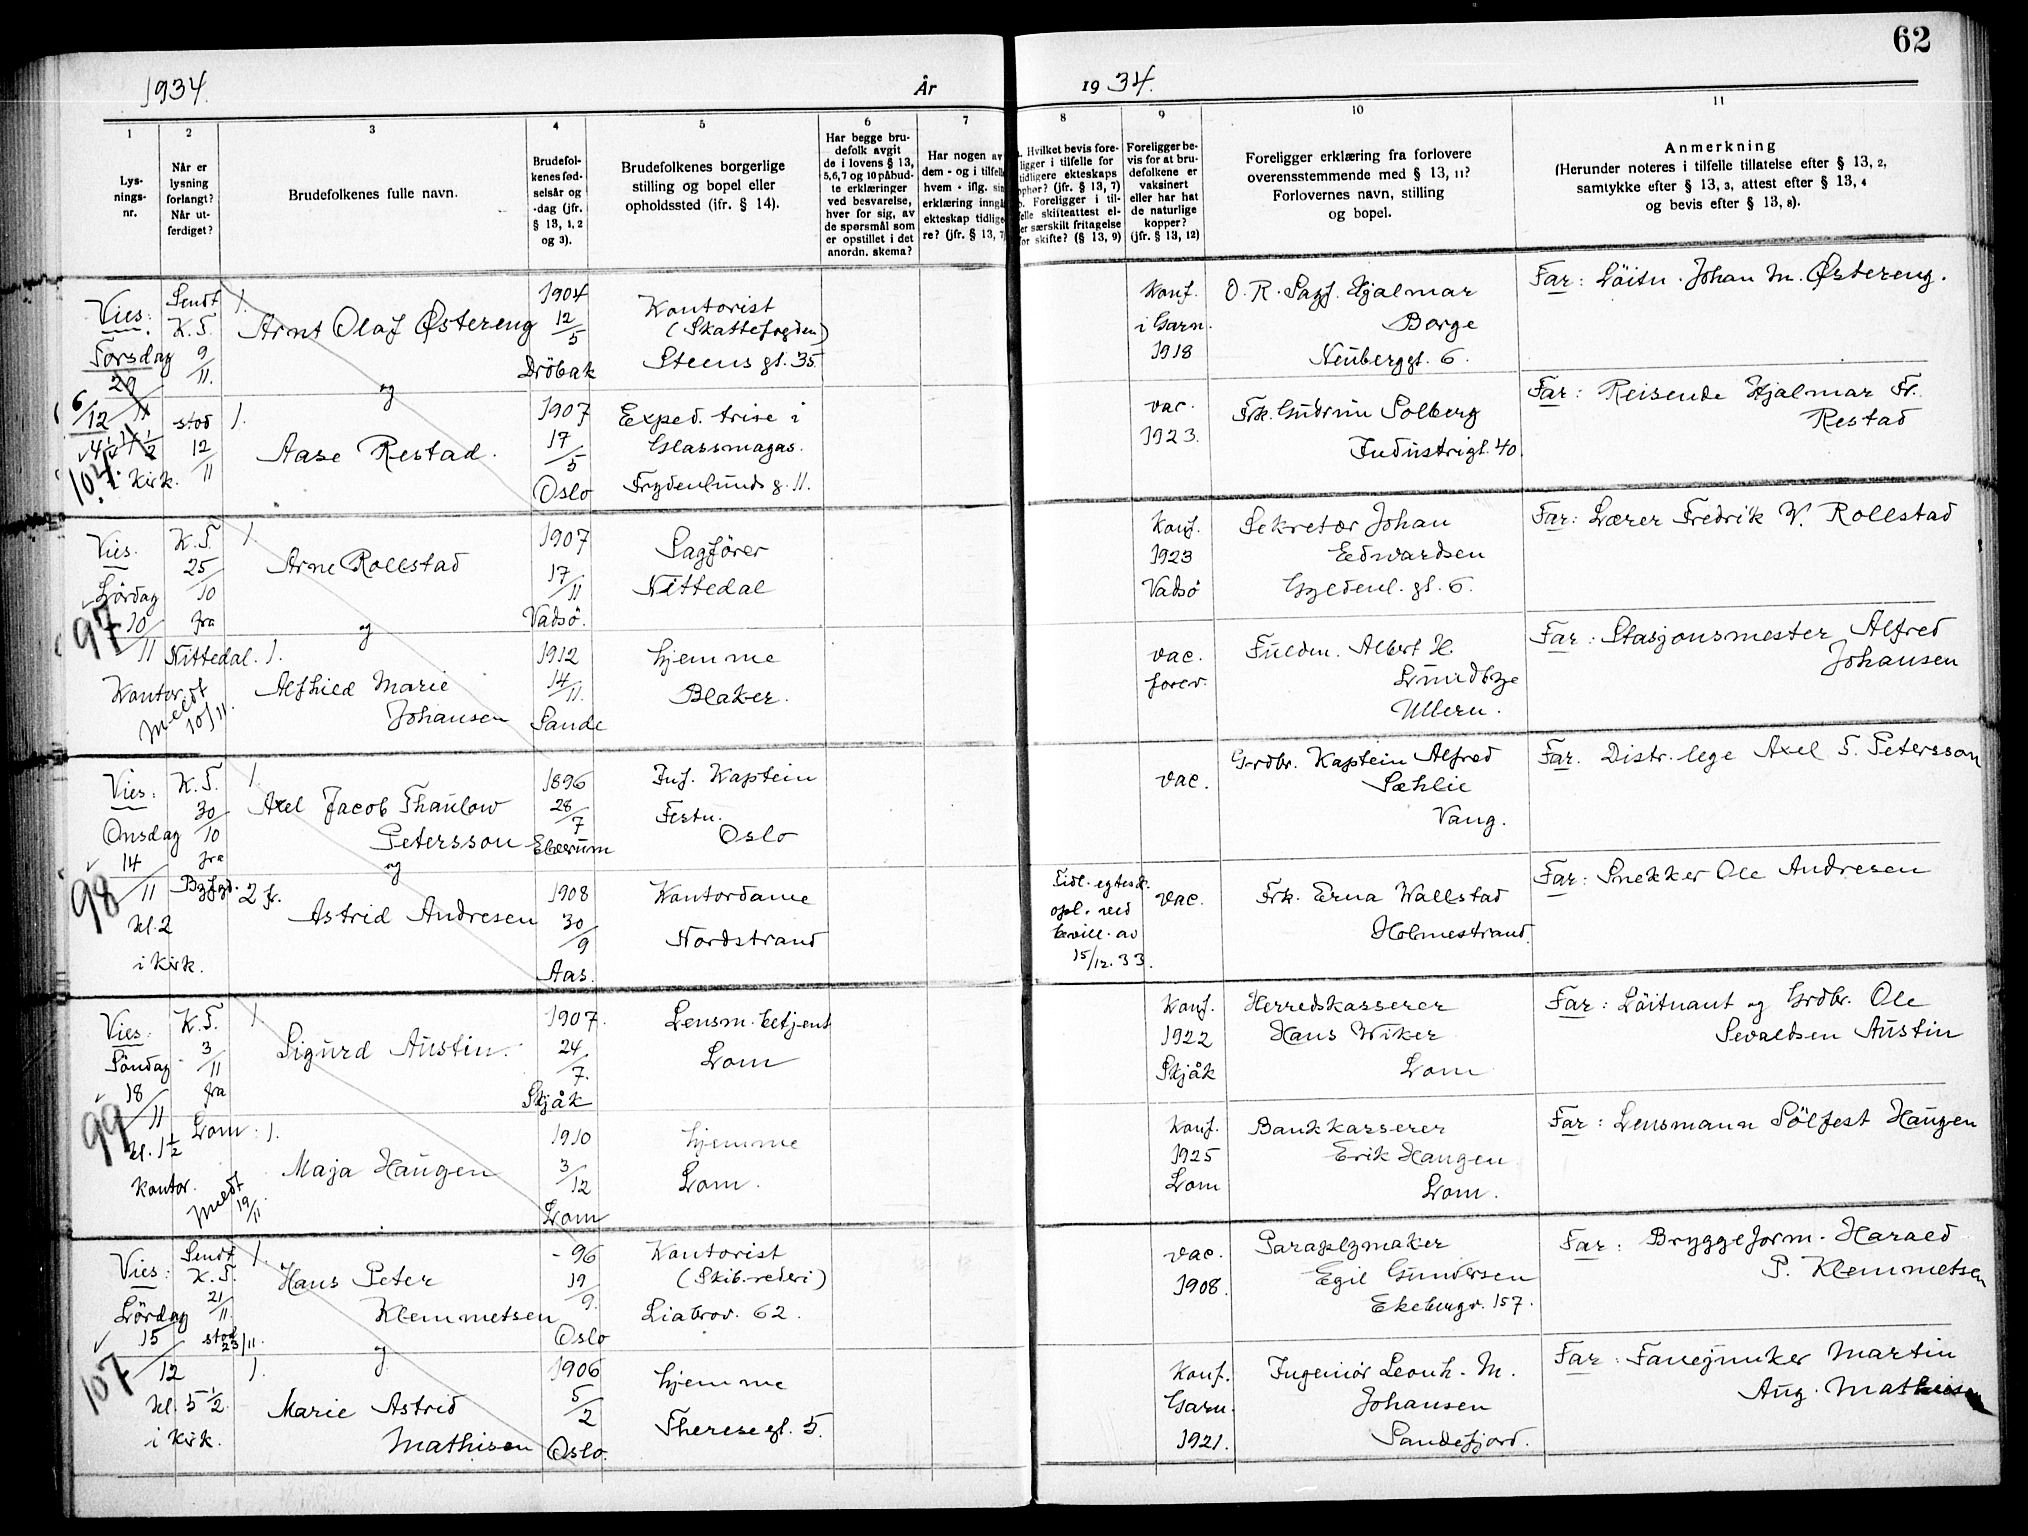 62
1934.
År
1934.
1
2
3
4
5
6
7
8
9
10
11
Lys-
nings-
nr.
Når er
lysning
forlangt?
Når ut-
ferdiget?
Brudefolkenes fulle navn.
Brudefol-
kenes fød-
selsår og
-dag (jfr.
§ 13, 1, 2
og 3).
Brudefolkenes borgerlige
stilling og bopel eller
opholdssted (jfr. § 14).
Har begge bru-
defolk avgit
de i lovens § 13,
5,6,7 og 10 påbud-
te erklæringer
ved besvarelse,
hver for sig, av
de spørsmål som
er opstillet i det
anordn. skema?
Har nogen av
dem - og i tilfelle
hvem - iflg. sin
erklæring inngå
ekteskap tidlige-
re? (jfr. § 13, 7
Hvilket bevis fore-
ligger i tilfelle for
tidligere ekteskaps
ophør? (jfr. § 13, 7)
b. Foreligger i til-
felle skifteattest el-
er særskilt fritagelse
for skifte? (§ 13, 9)
Foreligger be-
vis for at bru-
defolkene er
vaksinert
eller har hat
de naturlige
kopper?
(jfr. § 13, 12)
Foreligger erklæring fra forlovere
overensstemmende med § 13, 11?
Forlovernes navn, stilling
og bopel.
Anmerkning
(Herunder noteres i tilfelle tillatelse efter § 13, 2,
samtykke efter § 13, 3, attest efter § 13, 4
og bevis efter § 13, 8).
Vies:
Torsdag
29/11
6/12
4 1/2
i Kirk.
104
Sendt
K.T.
9/11.
stod
12/11
1.
Arnt Olaf Østereng
og
1.
Aase Restad.
1904
12/5
Dröbak
1907
17/5
Oslo
Kontorist
(Skattefogden)
Steensgt. 35
Exped. trise i
Glassmagas.
Frydenlunds g. 11.
Konf.
i Garn.
1918
vac.
1923.
O. R. Sagf. Hjalmar
Borge
Neuberggt. 6.
Frk. Gudrun Solberg
Industrigt. 40
Far: Löitn. Johan M. Østereng.
Far: Reisende Hjalmar Fr.
Restad
Vies.
Lördag
10/11
97
Kontoret
Meldt
10/11
K.T.
25/10
fra
Nittedal.
1.
Arne Rollstad
og
1.
Alfhild Marie
Johansen
1907
17/11
Vadsö.
1912
14/11.
Sande
Sagförer
Nittedal
hjemme
Blaker.
Konf.
1923
Vadsö
vac.
forev.
Sekretær Johan
Edvardsen
Gyldenl. gt. 6.
Fuldm. Albert H.
Lundbye
Ullern.
Far: Lærer Fredrik V. Rollstad
Far: Stasjonsmester Alfred
Johansen
Vies:
Onsdag
14/11
98
kl. 2
i Kirk.
K.T.
30/10
fra
Byfgd.
1.
Axel Jacob Thaulow
Petersson
og
2 fr.
Astrid Andresen
1896
28/7
Elverum
1908
30/9
Aas.
Inf. Kaptein
Festn.
Oslo
Kontordame
Nordstrand
Tidl. egtesk.
opl. ved
bevill. av
15/12.33.
vac.
vac.
Grdbr. Kaptein Alfred
Sæhlie
Vang.
Frk. Erna Wallstad
Holmestrand.
Far. Distr. lege Axel T. Petersson
Far: Snekker Ole Andresen
Vies:
Söndag
18/11
99
kl. 1 1/2
Kontor.
Meldt
19/11.
K.T.
3/11
fra
Lom.
1.
Sigurd Austin.
1.
Maja Haugen
1907.
24/7.
Skjåk
1910
3/12
Lom
Lensm. betjent
Lom
hjemme
Lom.
Konf.
1922
Skjåk
Konf.
1925
Lom
Herredskasserer
Hans Wiker
Lom
Bankkasserer
Erik Haugen
Lom.
Far: Löitnant og Grdbr. Ole
Sevaldsen Austin
Far: Lensmann Sölfest Haugen
Vies:
Lördag
15/12
107
kl. 5 1/2.
i Kirk.
Sendt
K.T.
21/11.
stod
23/11.
1.
Hans Peter
Klemmetsen
og
1.
Marie Astrid
Mathisen
- 96
19/9.
Oslo
1906
5/2
Oslo.
Kontorist
(Skib.rederi)
Liabrov. 62.
hjemme
Theresegt. 5.
vac.
1908.
Konf.
Garn.
1921.
Paraplymaker
Egil Gundersen
Ekebergv. 157.
Ingeniör Leonh. M.
Johansen
Sandefjord.
Far: Bryggeform. Harald
P. Klemmetsen
Far: Fanejunker Martin
Aug. Mathisen